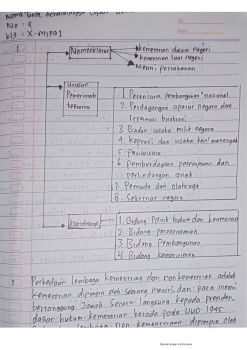 Nama:
No : 9
kls : X-MIPA 1
1
Nomenklatur
Kementrian dalam negeri
Kementrian luar negeri
Menri pertahanan
Urusan
Pemerintah
1. Perencana pembangunan nasional
2. Perdagangan aparatur negara dan
reformasi birokrasi
3. Badan usaha milik negara
4. Koprasi dan usaha kecil menengah
5 pariwisata
6. Pemberdayaan perempuan dan
perlindungan anak
7. Pemuda dan olahraga
8. Sekretar negara
Koordinasi
1. Bidang Politik hukum dan keamanan
2. Bidang perekonomian
3. Bidang Pembangunan
4. Bidang kemaritiman
2
Perbedaan lembaga kementrian dan non kementrian adalah
kementrian dipimpin oleh seorang mentri dan para mentri
bertanggung Jawab secara langsung kepada presiden
dasar hukum kementrian berada pada UUD 1945
lembaga non kementrian dipimpin oleh